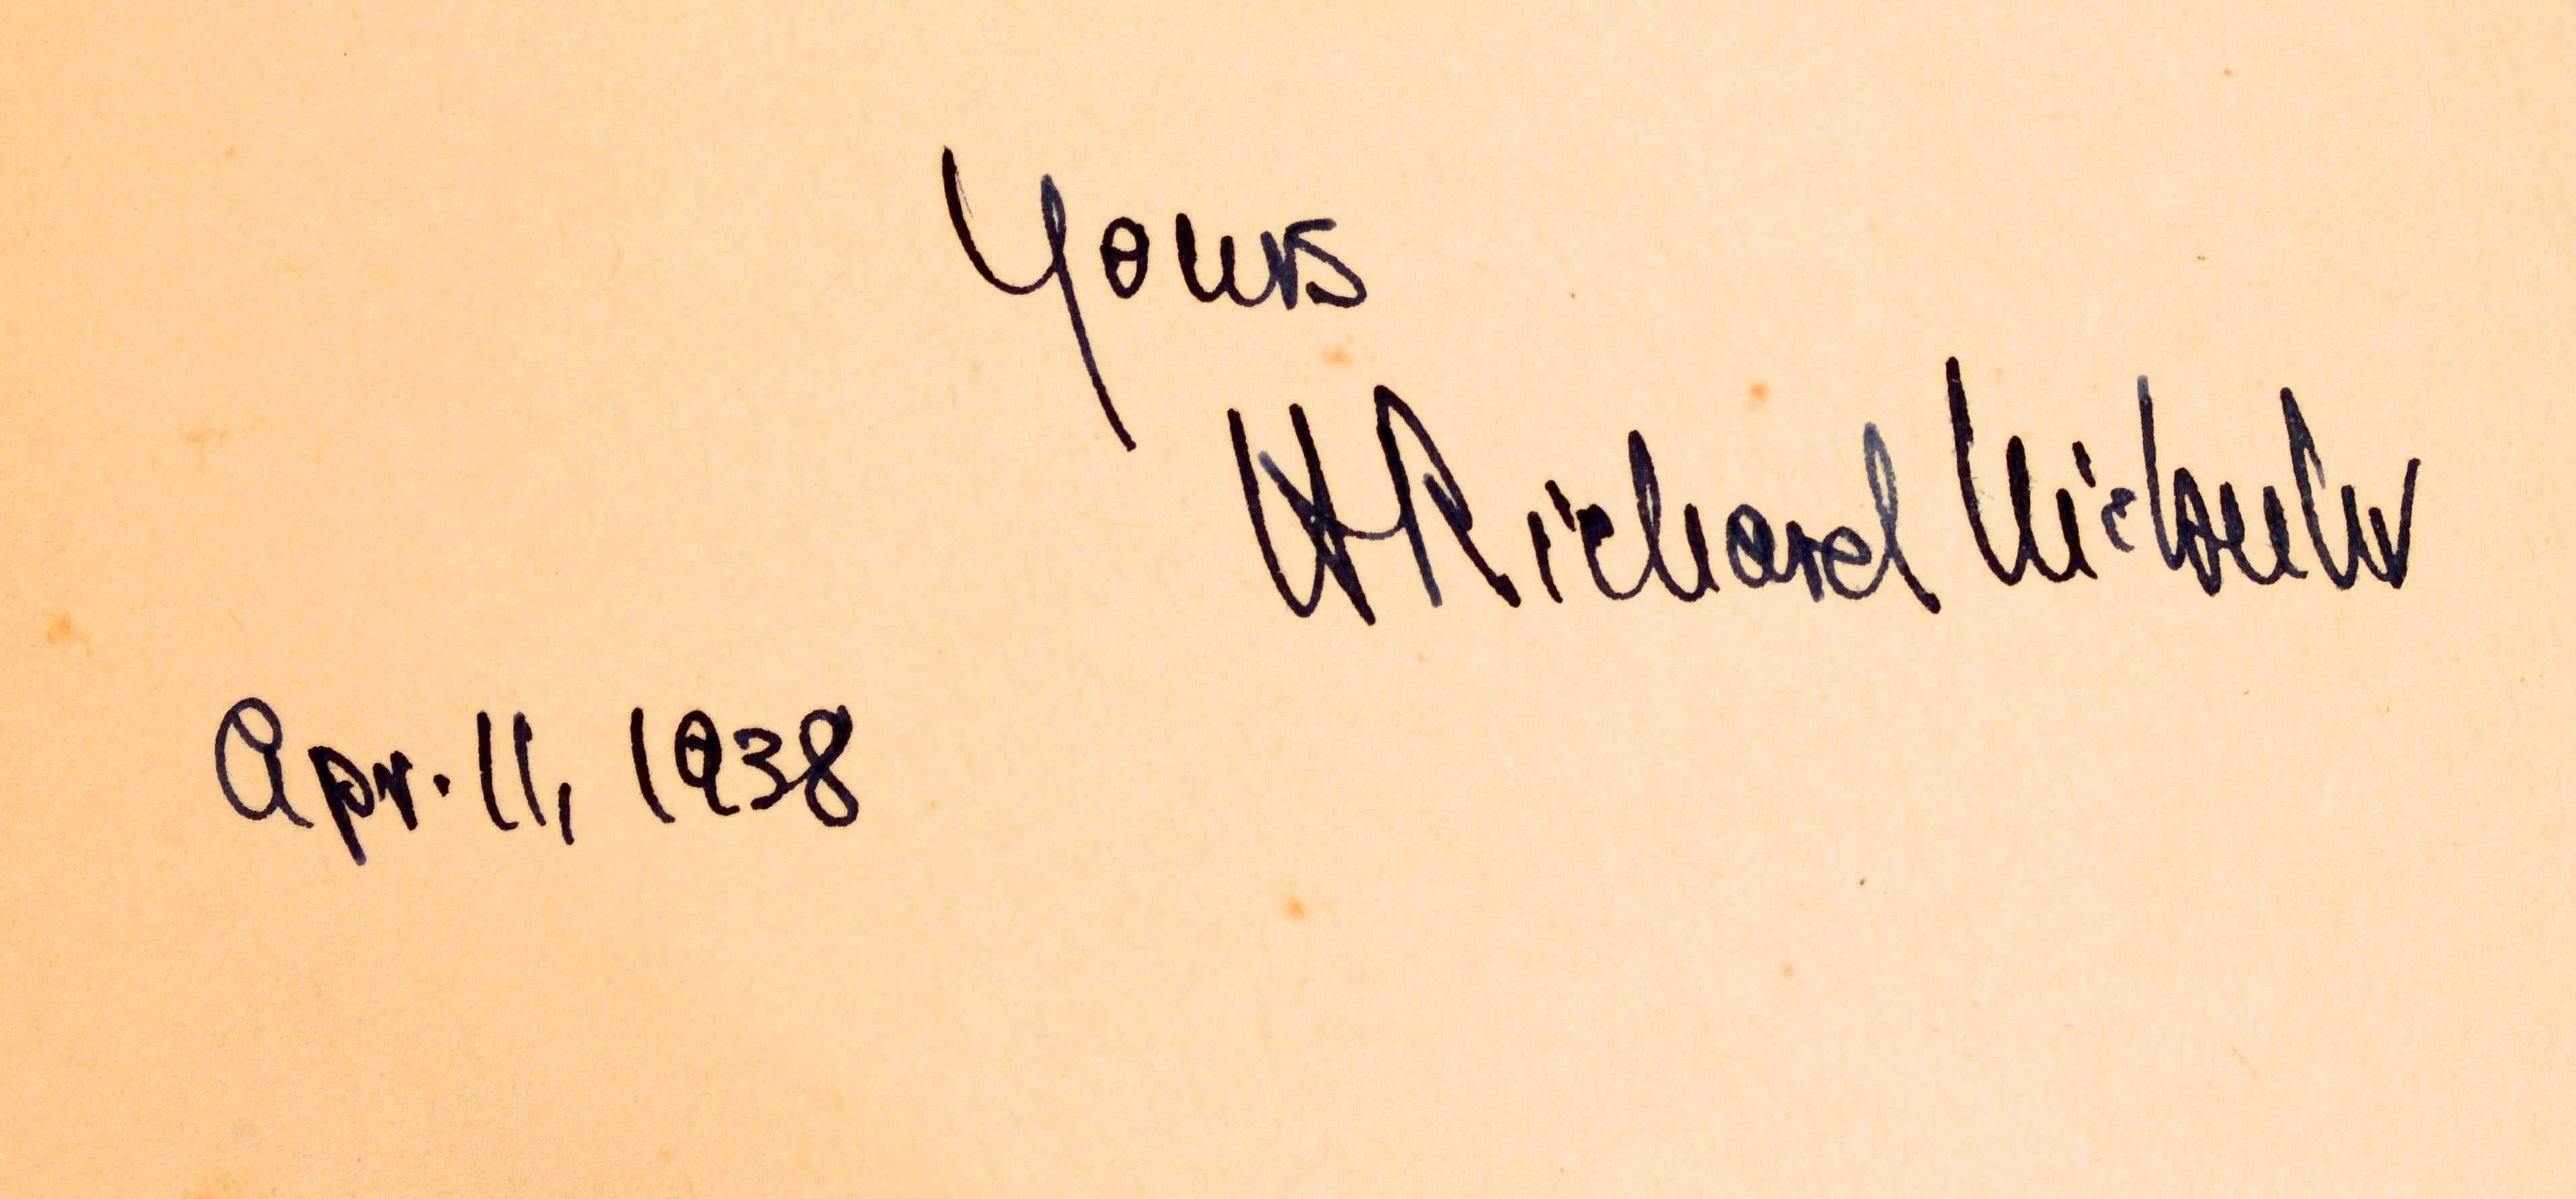 Yours
H Richard Niebuhr
Apr. 11, 1938